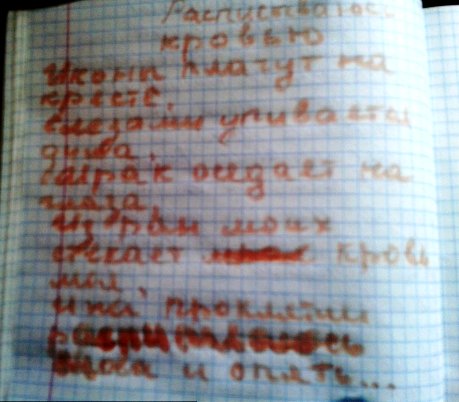 кровью
Иконы плачут на
кресте.
слезами упивается
душа.
Мрак оседает на
глаза.
Из ран моих
стекает кровь
моя.
и на проклятии
снова и опять...